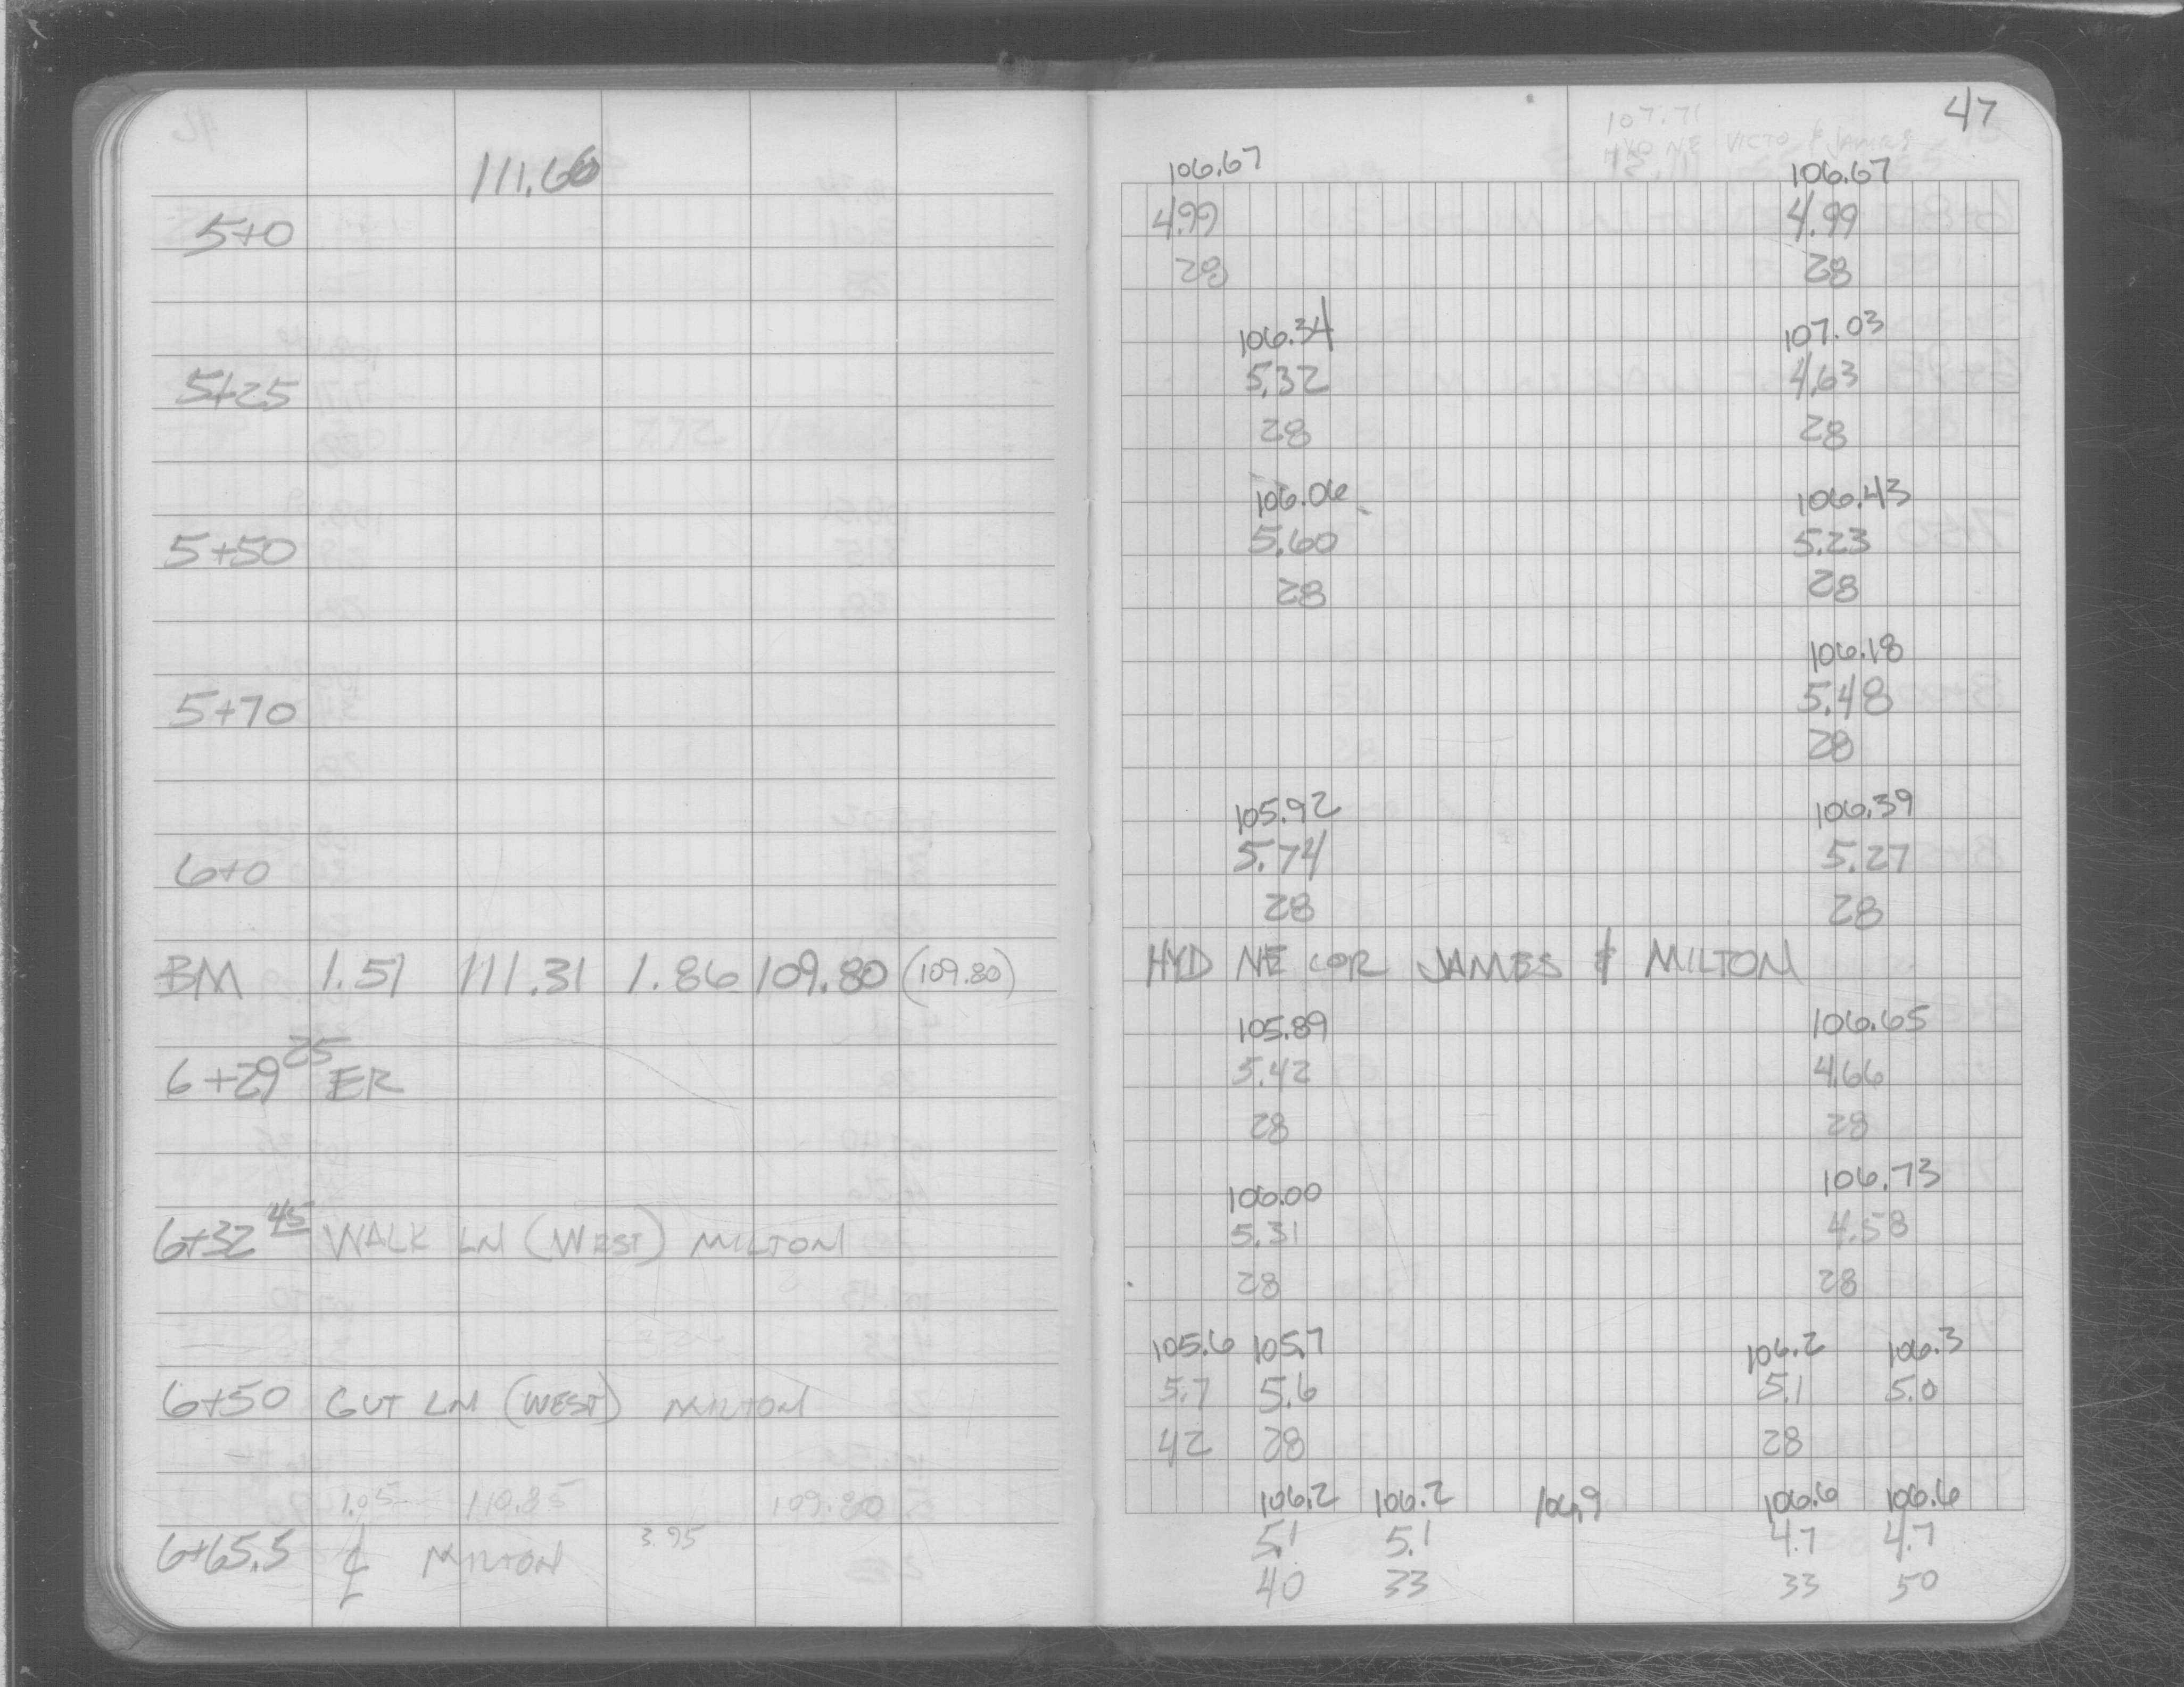 47
107.71
HYD NE VICTO & JAMES
111.66
106.67 106.67
5+0 4.99 4.99
28 28
106.34 107.03
5+25 5.32 4.63
28 28
106.06 106.43
5+50 5.60 5.23
28 28
106.18
5+70 5.48
28
105.92 106.39
6+0 5.74 5.27
28 28
BM 1.51 111.31 1.86 109.80 (109.80) HYD NE COR JAMES & MILTON
105.89 106.65
6+29 25 ER 5.42 4.66
28 28
106.00 106.73
6+32 45 WALK LN (WEST) MILTON 5.31 4.58
28 28
105.6 105.7 106.2 106.3
6+50 GUT LN (WEST) MILTON 5.7 5.6 5.1 5.0
42 28 28
1.05 110.85 109.80 106.2 106.2 106.9 106.6 106.6
6+65.5 ℄ MILTON 3.95 5.1 5.1 4.7 4.7
40 33 33 50